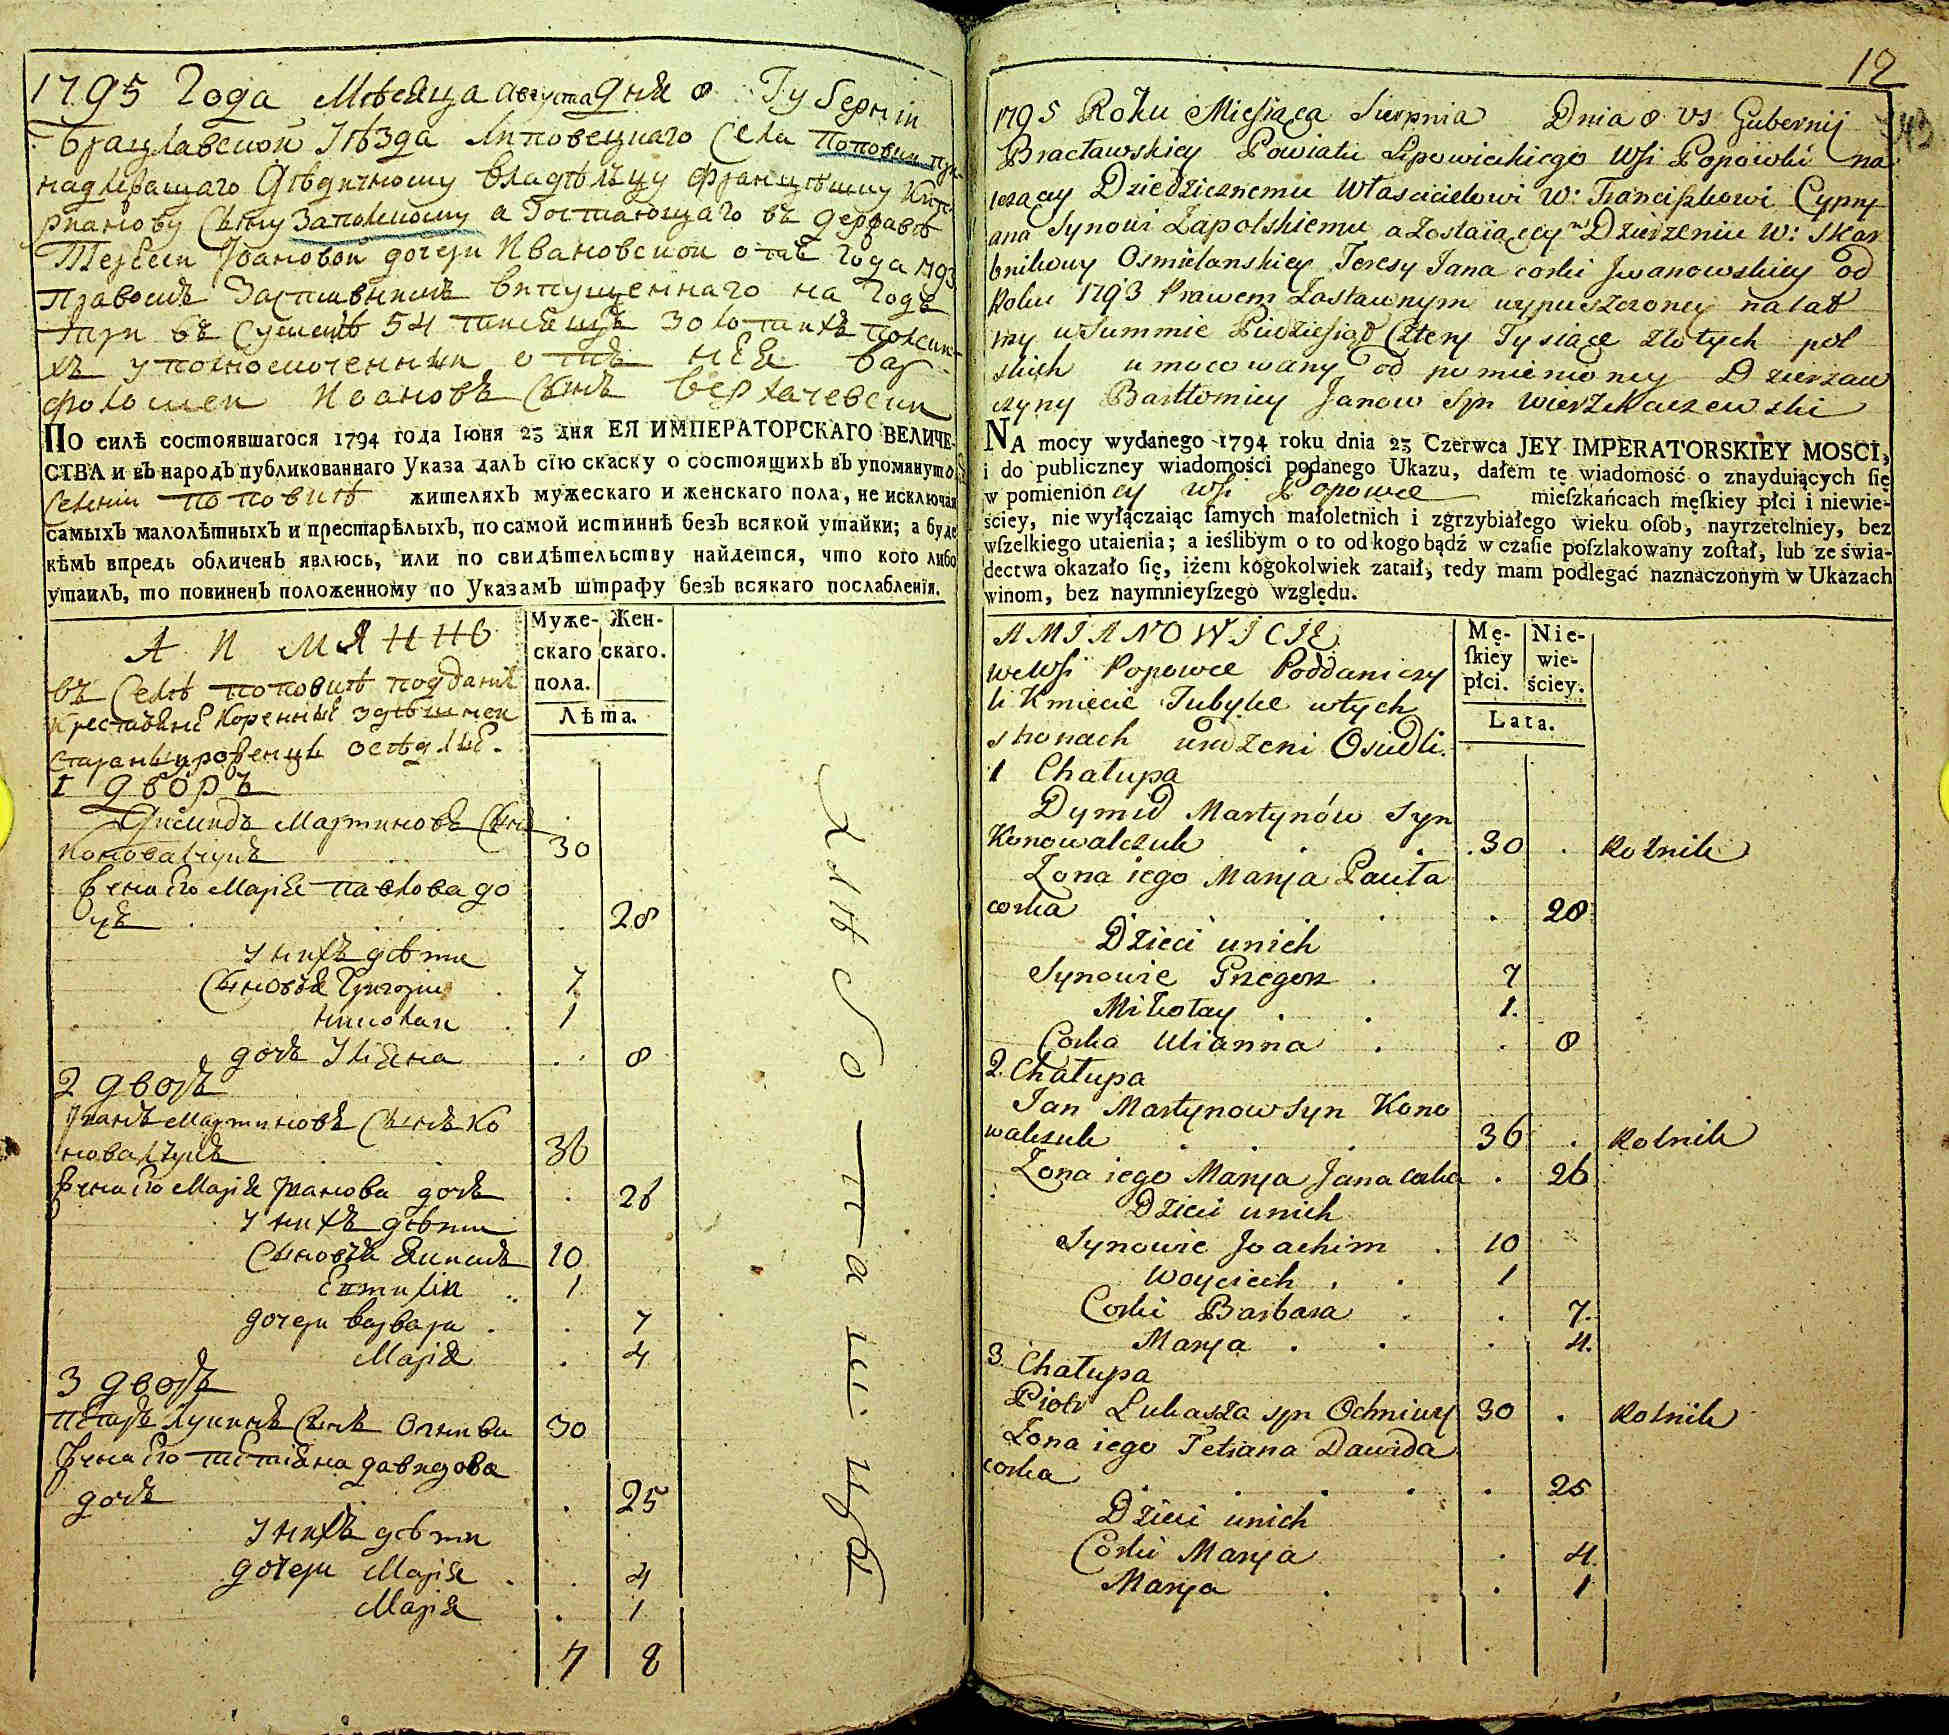 1795 Года Мѣсяца августа дня 8 Губерніи
Брацлавской Уѣзда Липовецкаго Села Поповки при
надлѣжащаго Дѣдичному Владѣлцу Францѣшку Кип
рианову Сыну Запольскому а состающаго въ державѣ
Тересы Ивановой дочери Ивановской отъ года 1793
Правомъ Заставнимъ випущеннаго на Годъ
три въ Суммѣ 54 тисячъ золотихъ полски
хъ уполномоченный отъ нея Вар
фоломей Ивановъ Сынъ Вержачевски
ПО силѣ состоявшагося 1794 года Iюня 23 дня ЕЯ ИМПЕРАТОРСКАГО ВЕЛИЧЕ-
СТВА и въ народъ публикованнаго Указа далъ сїю скаску о состоящихъ въ упомянуто
селении Поповкѣ жителяхъ мужескаго и женскаго пола, не исключая
самыхъ малолѣтныхъ и престарѣлыхъ, по самой истиннѣ безъ всякой утайки; а буде
кѣмъ впредь обличенъ явлюсь, или по свидѣтельству найдется, что кого либо
утаилъ, то повиненъ положенному по Указамъ штрафу безъ всякаго послабленїя.
А И МЯННО
Муже- Жен-
скаго скаго.
пола.
Лѣта.
въ Селѣ Поповкѣ подданіе
крестьяне Коренніе здѣшней
стараны уроженцы осѣдлые.
1 дворъ
Димидъ Мартиновъ Сынъ
Коновалчукъ 30
Жена Его Марія Павлова до
чь 28
У нихъ дѣти
Сыновья Григорій 7
Николай 1
дочь Уліяна 8
2 дворъ
Иванъ Мартиновъ Сынъ Ко
новалчукъ 36
Жена Его Марія Иванова дочь 26
У нихъ дѣти
Сыновья Якимъ 10
1
дочери Варвара 7
Марія 4
3 дворъ
Петръ Лукинъ Сынъ 30
Жена Его Тетіяна Давидова
дочь 25
У нихъ дѣти
дочери Марія 4
Марія 1
7 8
12
1795 Roku Miesiąca Sierpnia Dnia 8 VS Gubernij
Bracławskiey Powiatu Lipowieckiego Wsi Popowki na
leżącey Dziedzicznemu Właścicielowi W: Franciszkowi Cypry
ana Synowi Zapolskiemu a zostaiącey w Dzierżeniu W: Skar
bnikowy Osmielanskiey Teresy Jana corki Jwanowskiey od
Roku 1793 Prawem Zastawnym wypuszczoney na lat
trzy w Summie Pięćdziesiąt Cztery Tysiące złotych pol
skich umocowany od pomienioney Dzierzaw
czyny Bartłomiey Janow syn Wierzkaczewski
NA mocy wydanego 1794 roku dnia 23 Czerwca JEY IMPERATORSKIEY MOSCI,
i do publiczney wiadomości podanego Ukazu, dałem tę wiadomość o znayduiących ſię
w pomienioney wsi Popowce mieſzkańcach męſkiey płci i niewie-
ściey, nie wyłączaiąc ſamych małoletnich i zgrzybiałego wieku oſob, nayrzetelniey, bez
wſzelkiego utaienia; a ieślibym o to od kogo bądź w czaſie poſzlakowany zoſtał, lub ze świa-
dectwa okazało ſię, iżem kogokolwiek zataił, tedy mam podlegać naznaczonym w Ukazach
winom, bez naymnieyſzego względu.
AMIANOWICIE
Mę- Nie-
ſkiey wie-
płci. ściey.
Lata.
we Wsi Popowce Poddani czy
li Kmiecie Tubylce w tych
stronach urodzeni Osiedli.
1 Chałupa
Dymid Martynów Syn
Konowalczuk 30 Rolnik
Żona iego Marya Pawła
corka 28
Dzieci u nich
Synowie Grzegorz 7
Mikołay 1.
Corka Ulianna 8
2. Chałupa
Jan Martynow Syn Kono
walczuk 36 Rolnik
Żona iego Marya Jana corka 26
Dzieci u nich
Synowie Joachim 10
Woyciech 1
Corki Barbara 7.
Marya 4.
3. Chałupa
Piotr Łukasza syn 30 Rolnik
Żona iego Tetiana Dawida
corka 25
Dzieci u nich
Corki Marya 4.
Marya 1